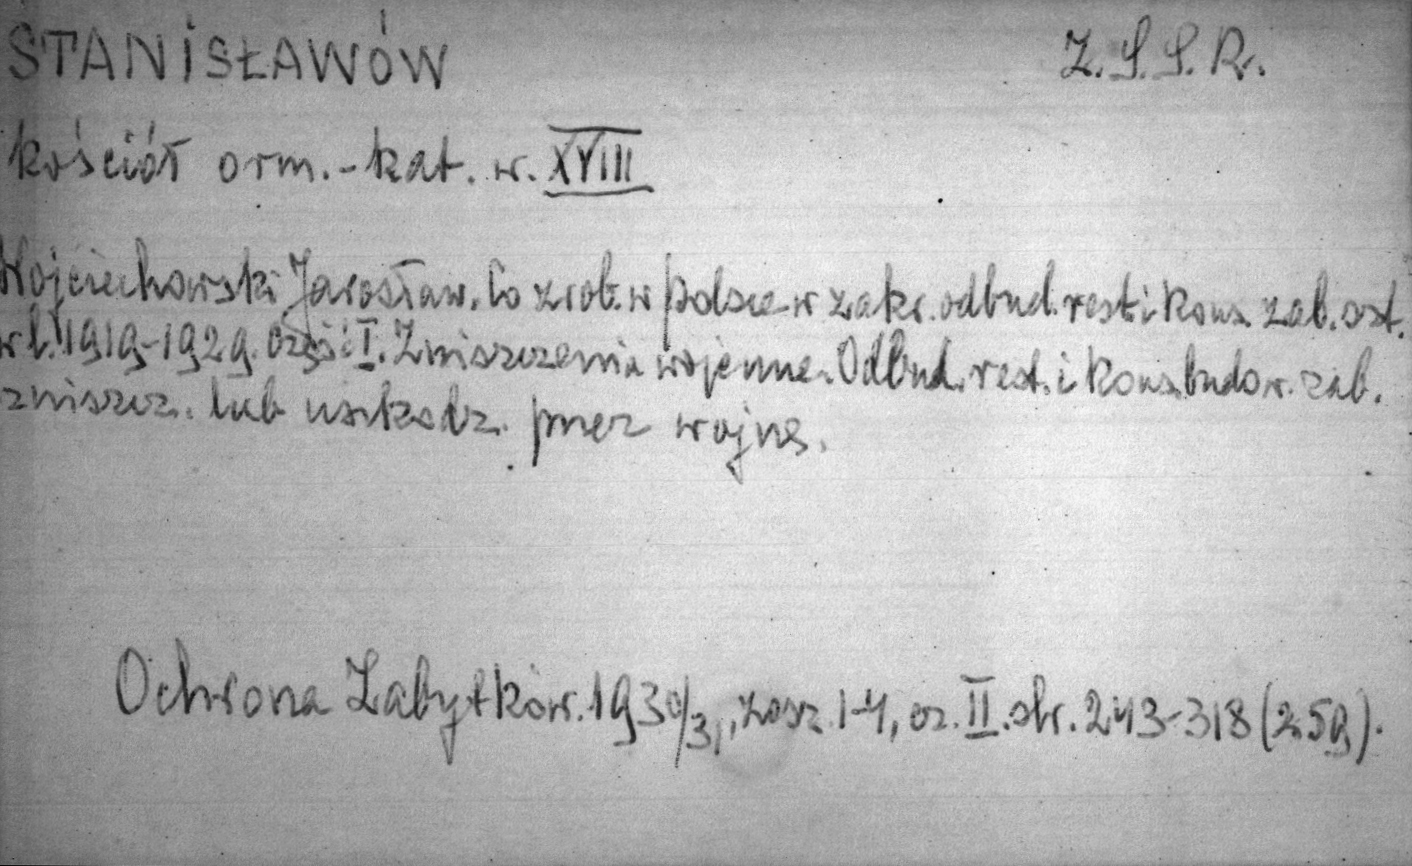 STANISŁAWÓW Z.S.S.R.
kościół orm.-kat. w. XVIII
Wojciechowski Jarosław. Co zrob. w Polsce w zakr. odbud. rest. i kons. zab. ost.
w l. 1919-1929. Część I. Zniszczenia wojenne. Odbud. rest. i kons. budow. zab.
zniszcz. lub uszkodz. przez wojnę.
Ochrona Zabytków. 1930/31, zesz. 1-4, cz. II. str. 243-318 (259).